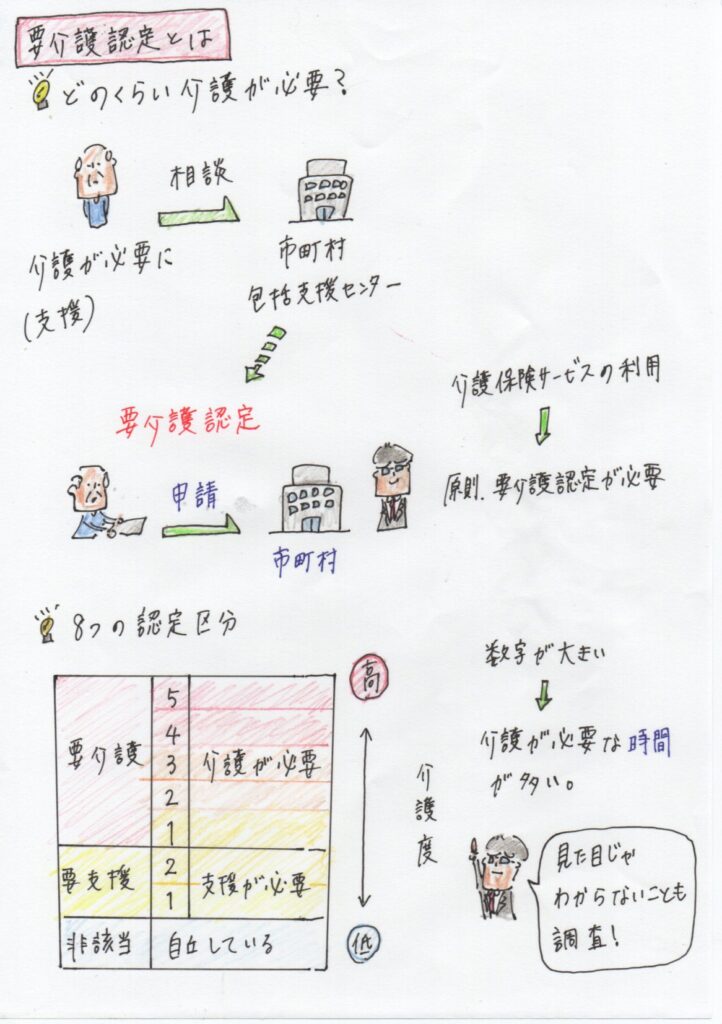 要介護認定とは
どのくらい介護が必要？
相談
介護が必要に
(支援)
市町村
包括支援センター
要介護認定
申請
市町村
介護保険サービスの利用
原則、要介護認定が必要
8つの認定区分
要介護
5
4
3
2
1
介護が必要
要支援
2
1
支援が必要
非該当
自立している
高
介護度
低
数字が大きい
介護が必要な時間
が多い。
見た目じゃ
わからないことも
調査！